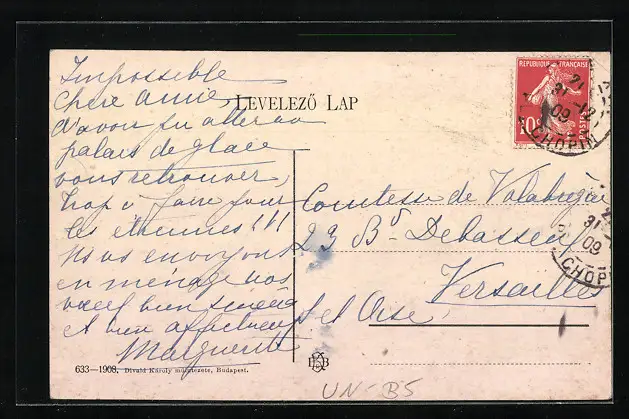 Impossible
chère amie
LEVELEZŐ LAP
d'avoir pu aller au
palais de glace
vous retrouver,
trop à faire pour
les étrennes !!!
Nous envoyons
en ménage nos
voeux bien sincères
et bien affectueux
Marguerite
REPUBLIQUE FRANÇAISE
10c
POSTES
CHOPIN
21
31-12
09
Comtesse de
23 Bd
Versailles
Set Oise
21
31
09
CHOP
633—1908. Divald Károly műintézete, Budapest.
UN-B5